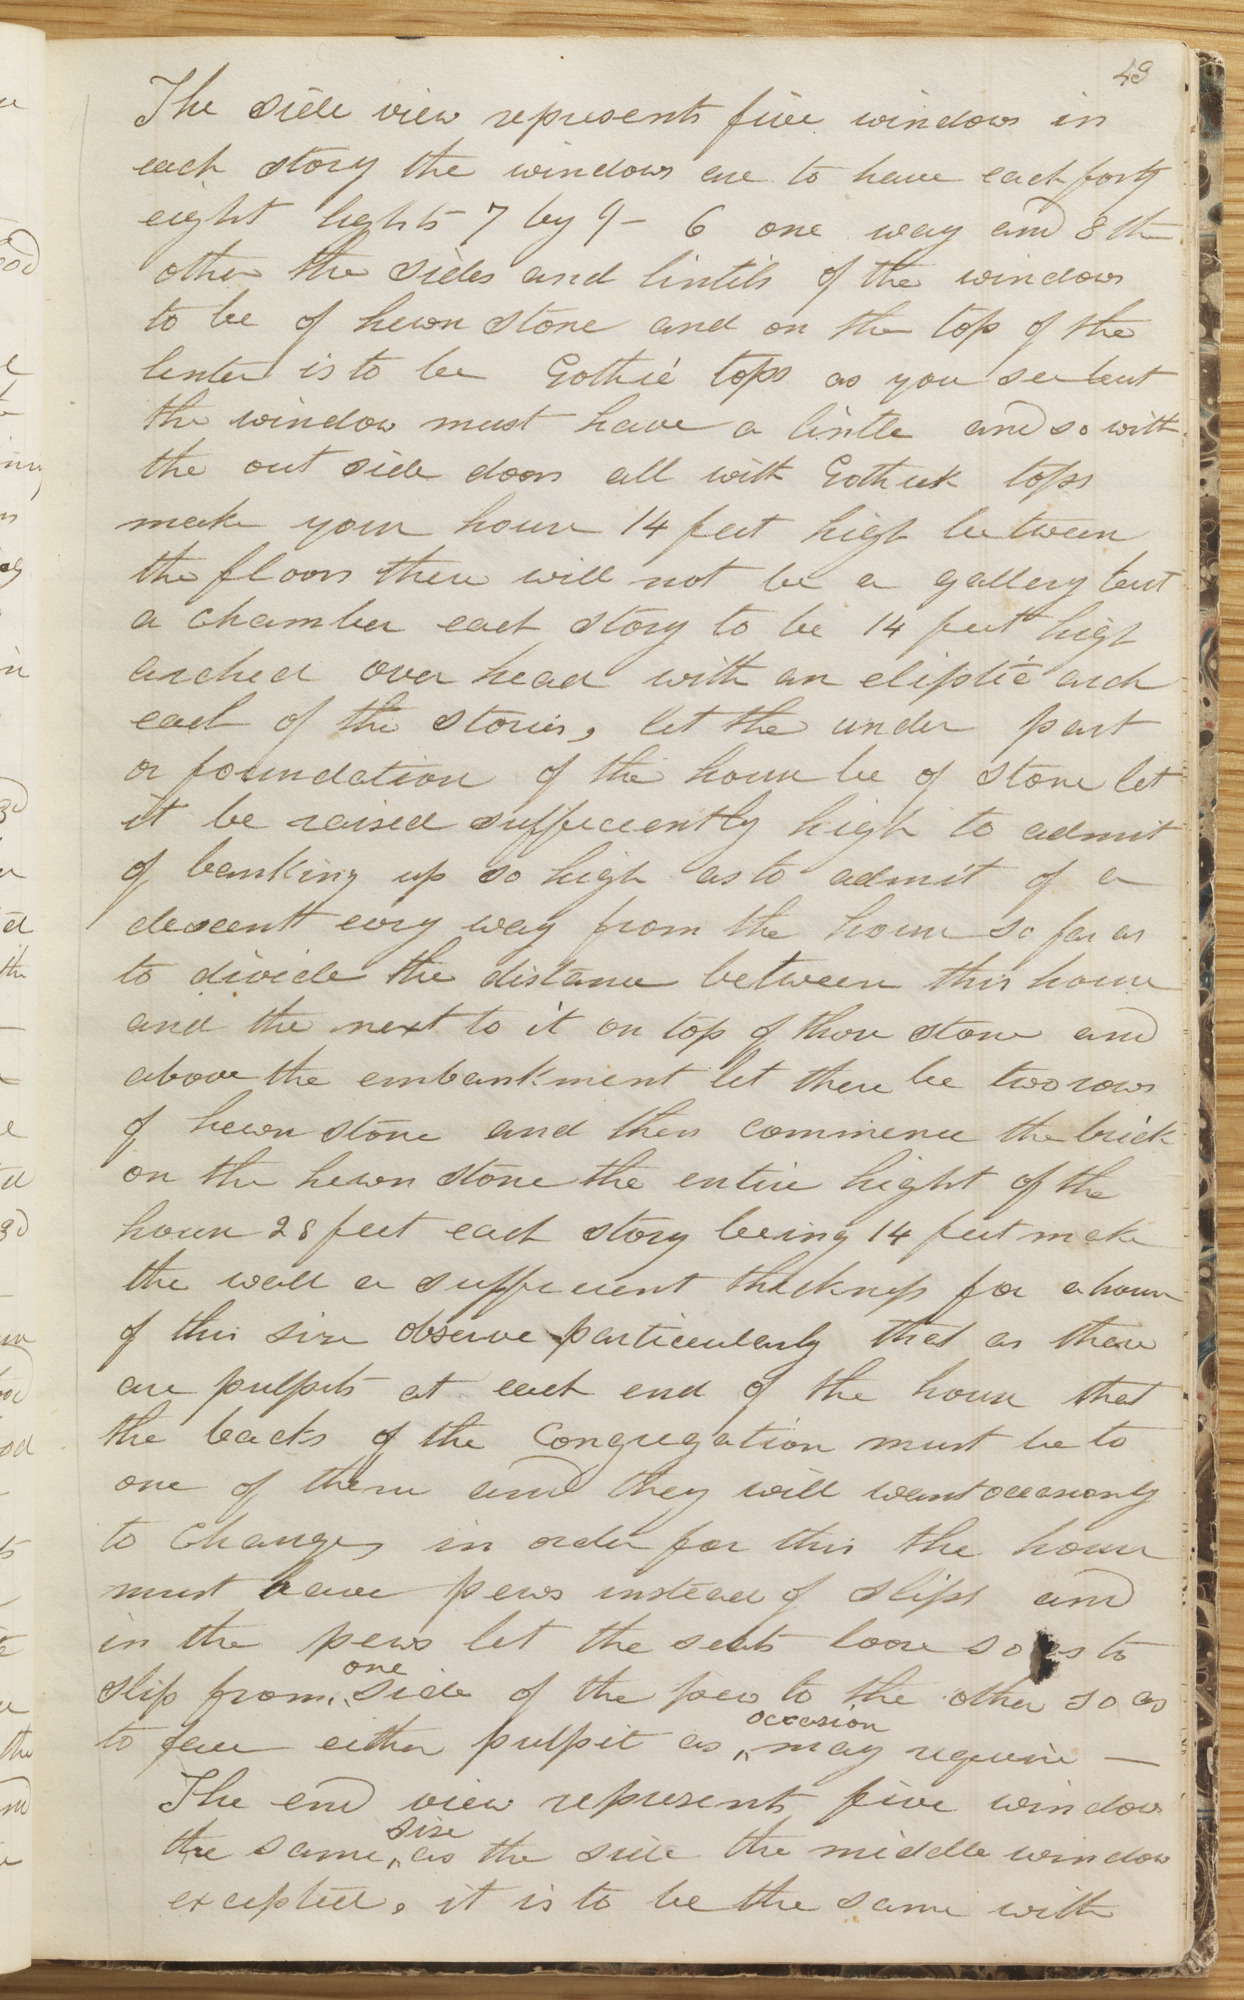 49
The side view represents five windows in
each story the windows are to have each forty
eight lights 7 by 9 - 6 one way and 8 the
other the sides and lintils of the windows
to be of hewn stone and on the top of the
linter is to be Gothic tops as you see but
the window must have a lintle and so with
the out side doors all with Gothick tops
make your house 14 feet high between
the floors there will not be a gallery but
a chamber each story to be 14 feet high
arched over head with an eliptic arch
each of the stories, let the under part
or foundation of the house be of stone let
it be raised sufficiently high to admit
of banking up so high as to admit of a
descent evry way from the house so far as
to divide the distance between this house
and the next to it on top of thou stone and
above the embankment let there be two rows
of hewn stone and then commence the brick
on the hewn stone the entire hight of the
house 28 feet each story being 14 feet make
the wall a sufficient thickness for a house
of this size observe particularly that as there
are pulpits at each end of the house that
the backs of the congregation must be to
one of them and they will want occasionly
to changes in order for this the house
must have pews instead of slips and
in the pews let the seats loose so as to
slip from one side of the pew to the other so as
to face either pulpit as occasion may require —
The end view represents five window
the same size as the side the middle window
excepted, it is to be the same with